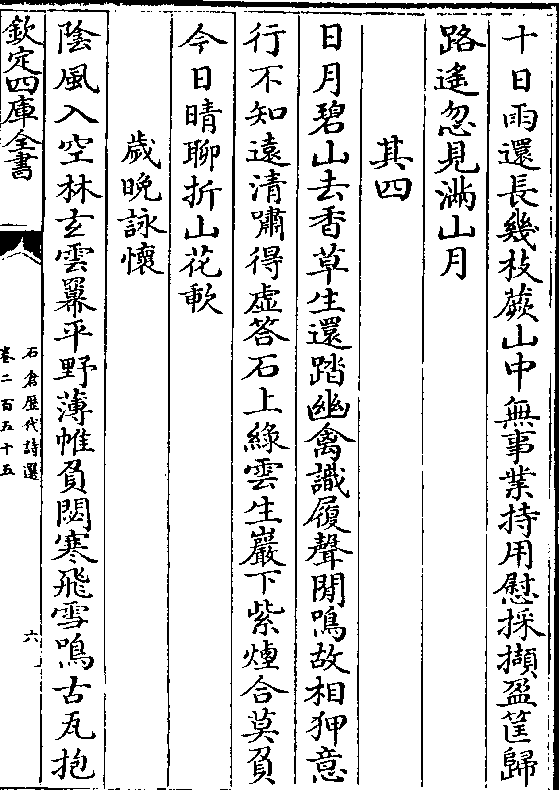 十日雨還長幾枝蕨山中無事業持用慰採擷盈筐歸
路遙忽見滿山月
其四
日月碧山去香草生還踏幽禽識履聲閒鳴故相狎意
行不知遠清嘯得虛答石上綠雲生巖下紫煙合莫負
今日晴聊折山花歃
歲晚詠懷
陰風入空林玄雲羃平野薄帷負閟寒飛雪鳴古瓦抱
欽定四庫全書
石倉歷代詩選
卷二百五十五
六